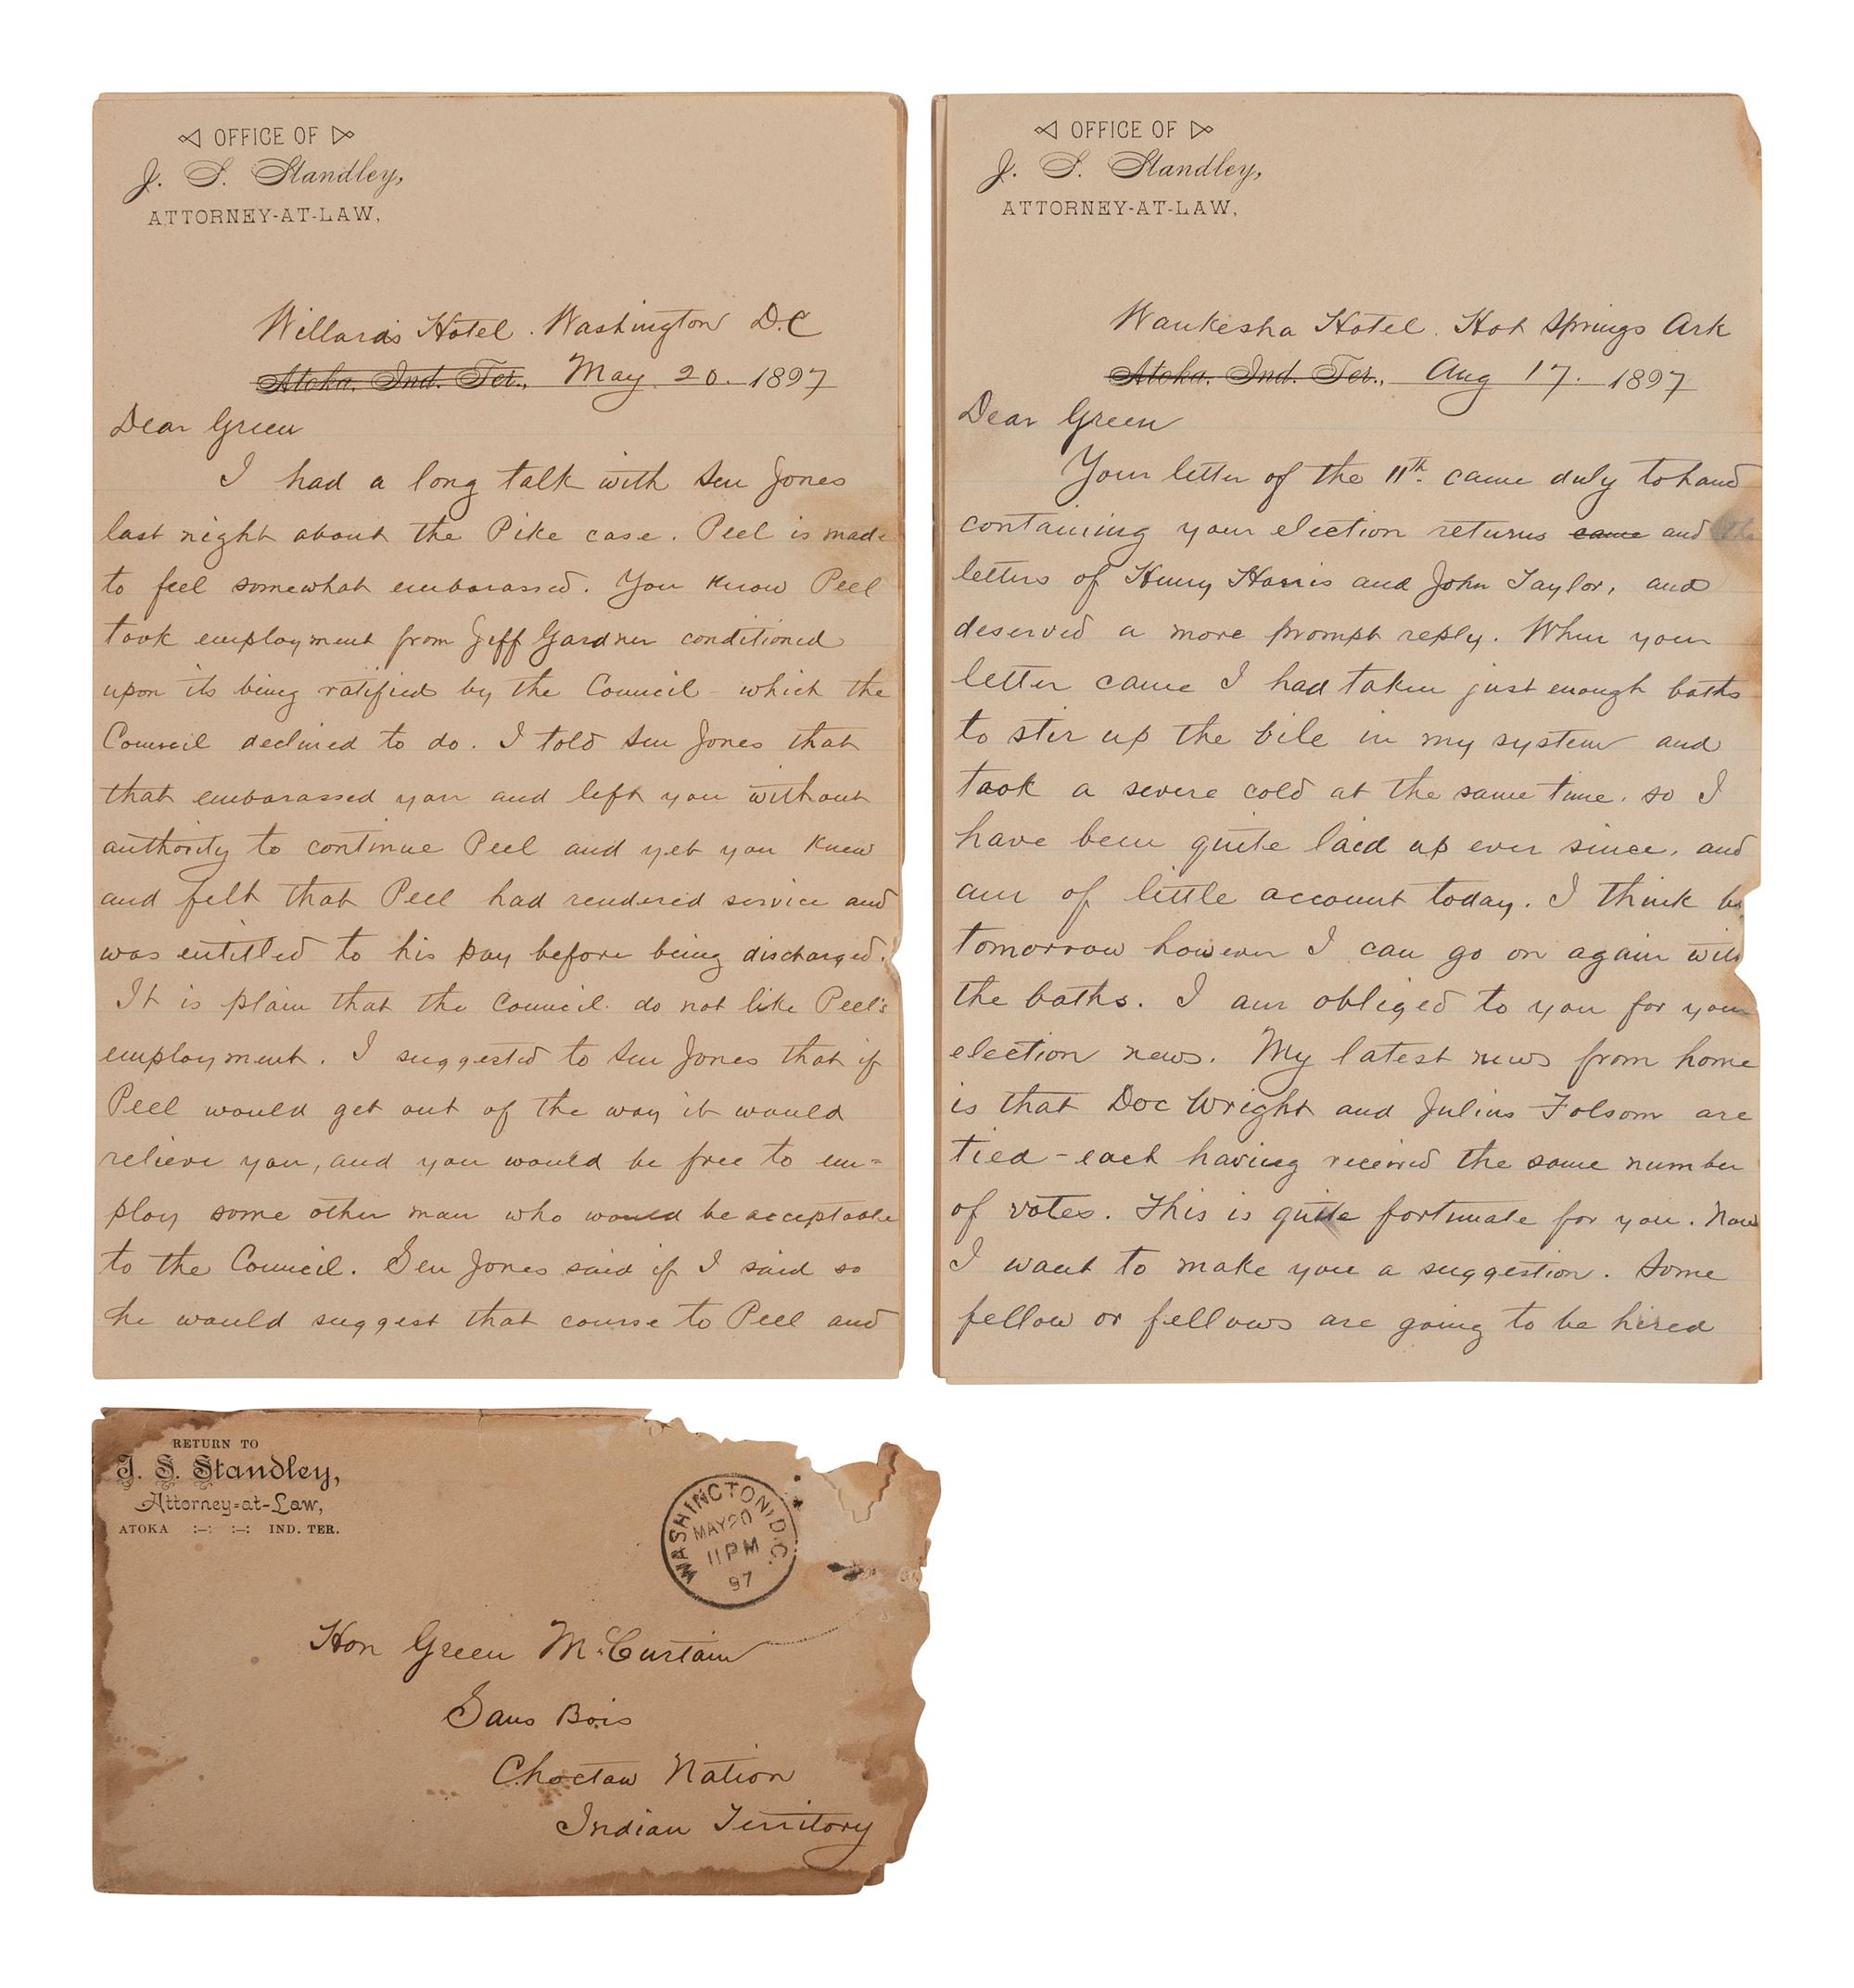 OFFICE OF
J. S. Standley,
ATTORNEY-AT-LAW,
Willards Hotel. Washington D.C
Atoka, Ind. Ter., May 20. 1897
Dear Green
I had a long talk with Sen Jones
last night about the Pike case. Peel is made
to feel somewhat embarassed. You know Peel
took employment from Jeff Gardner conditioned
upon its being ratified by the Council - which the
Council declined to do. I told Sen Jones that
that embarassed you and left you without
authority to continue Peel and yet you knew
and felt that Peel had rendered service and
was entitled to his pay before being discharged.
It is plain that the Council do not like Peel's
employment. I suggested to Sen Jones that if
Peel would get out of the way it would
relieve you, and you would be free to em=
ploy some other man who would be acceptable
to the Council. Sen Jones said if I said so
he would suggest that course to Peel and
OFFICE OF
J. S. Standley,
ATTORNEY-AT-LAW,
Waukesha Hotel. Hot Springs Ark
Atoka, Ind. Ter., Aug 17. 1897
Dear Green
Your letter of the 11th. came duly to hand
containing your election returns came and the
letters of Henry Harris and John Taylor, and
deserved a more prompt reply. When your
letter came I had taken just enough baths
to stir up the bile in my system and
took a severe cold at the same time, so I
have been quite laid up ever since, and
am of little account today. I think by
tomorrow however I can go on again with
the baths. I am obliged to you for your
election news. My latest news from home
is that Doc Wright and Julius Folsom are
tied - each having received the same number
of votes. This is quite fortunate for you. Now
I want to make you a suggestion. Some
fellow or fellows are going to be hired
RETURN TO
J. S. Standley,
Attorney=at-Law,
ATOKA :-: :-: IND. TER.
WASHINGTON, D.C.
MAY 20
11 PM
97
Hon Green McCurtain
Sans Bois
Choctaw Nation
Indian Territory